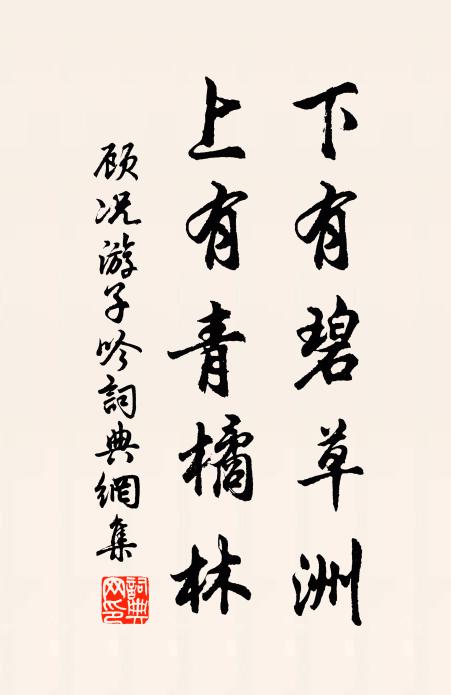 下有碧草洲
上有青橘林
顾况游子吟詞典網集
詞典網印